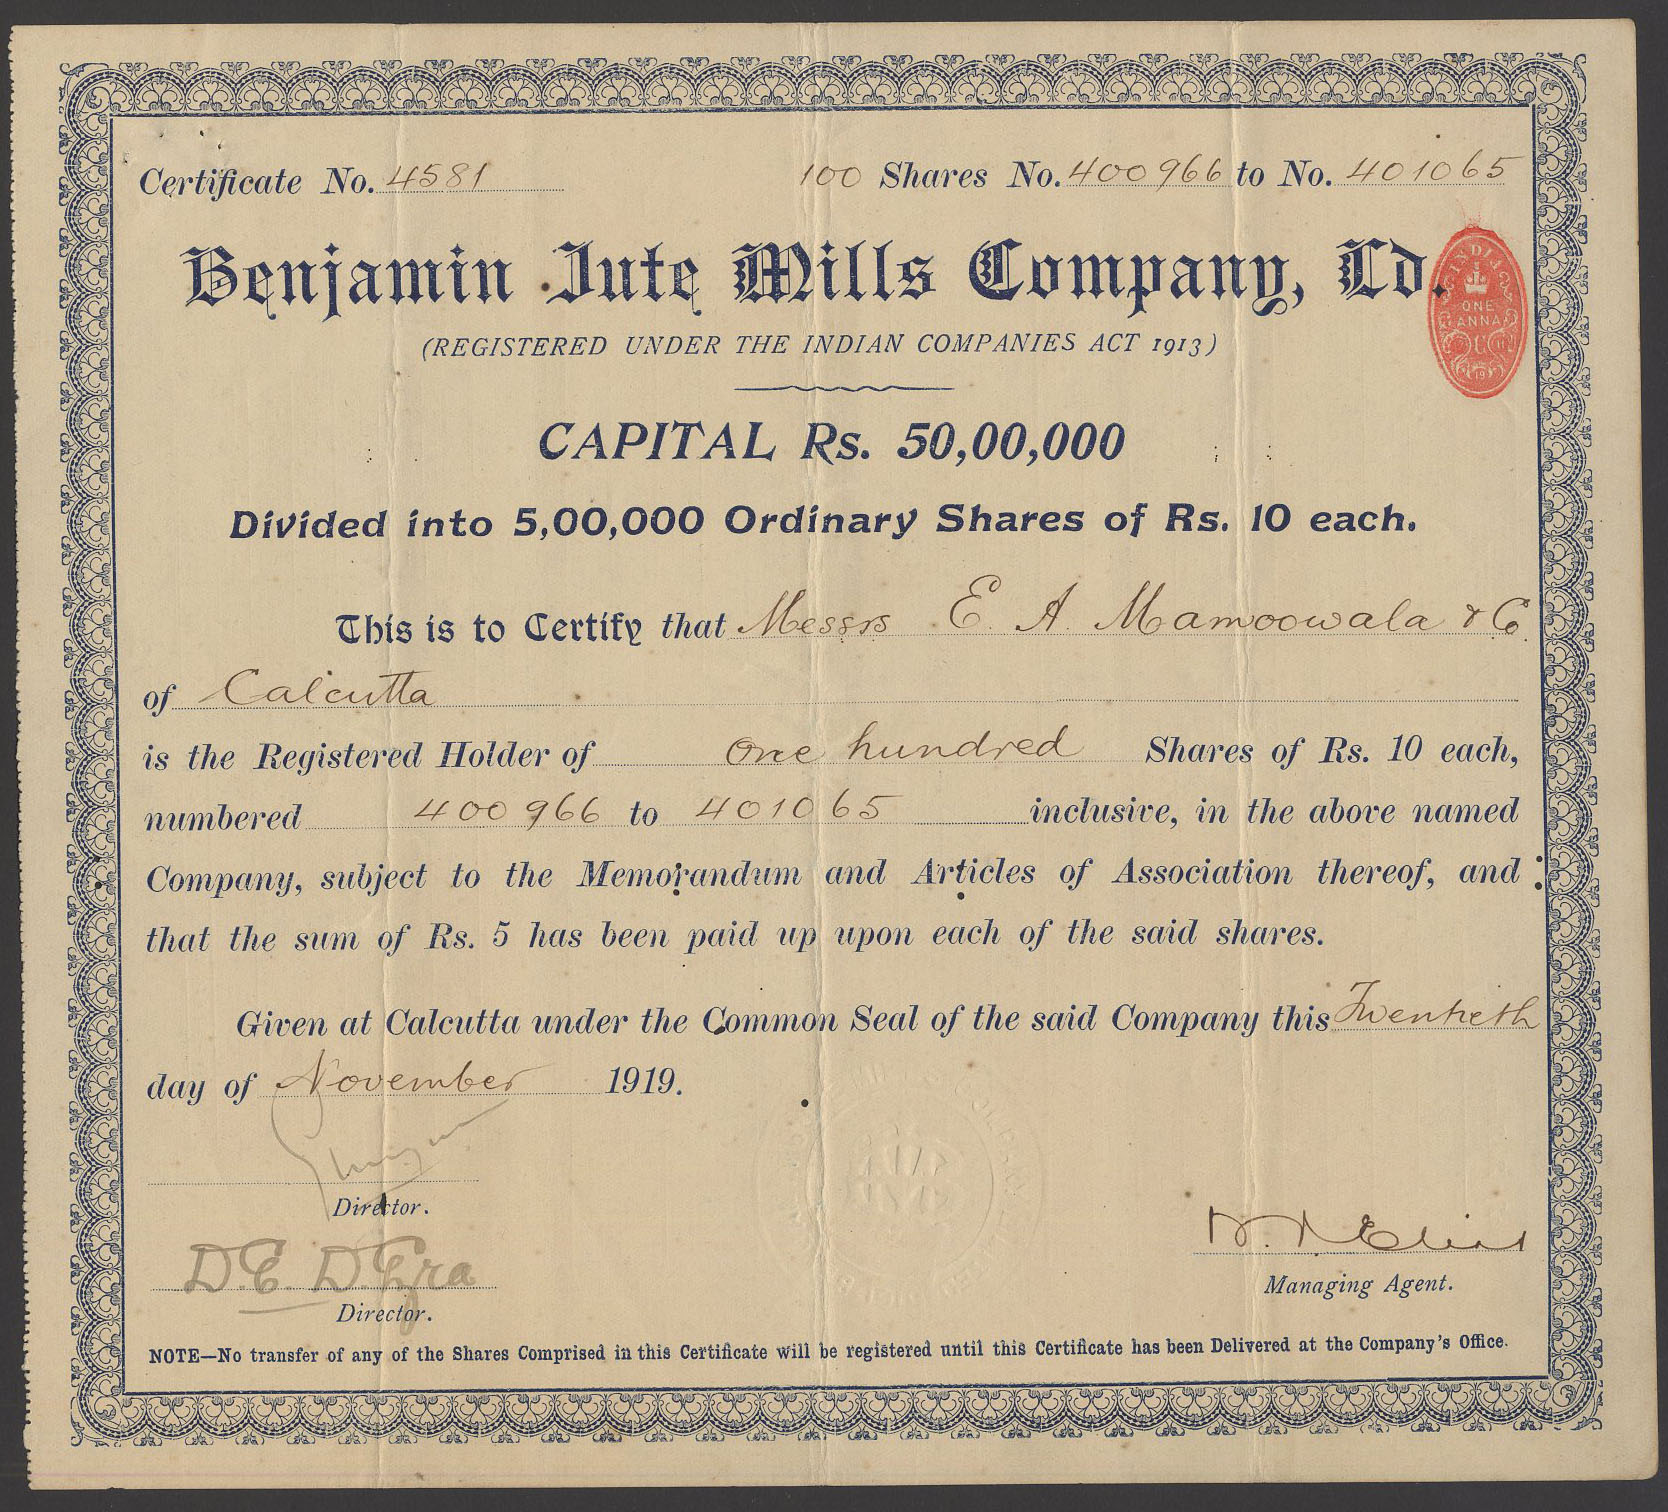 Certificate No. 4581 100 Shares No. 400966 to No. 401065
Benjamin Jute Mills Company, Ld.
INDIA
ONE
ANNA
(REGISTERED UNDER THE INDIAN COMPANIES ACT 1913)
CAPITAL Rs. 50,00,000
Divided into 5,00,000 Ordinary Shares of Rs. 10 each.
This is to Certify that Messrs E. A. Mamoowala & Co.
of Calcutta
is the Registered Holder of One hundred Shares of Rs. 10 each,
numbered 400966 to 401065 inclusive, in the above named
Company, subject to the Memorandum and Articles of Association thereof, and
that the sum of Rs. 5 has been paid up upon each of the said shares.
Given at Calcutta under the Common Seal of the said Company this Twentieth
day of November 1919.
Director.
D. E. D. Ezra
Director.
Managing Agent.
NOTE—No transfer of any of the Shares Comprised in this Certificate will be registered until this Certificate has been Delivered at the Company's Office.